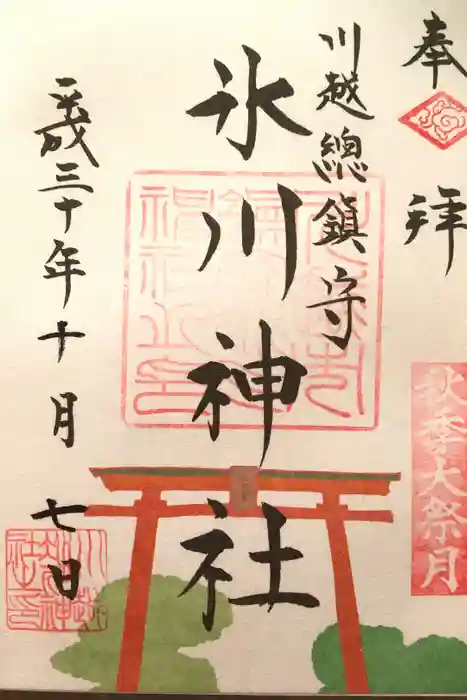 奉拝
秋季大祭月
川越總鎮守
氷川神社
平成三十年十月七日